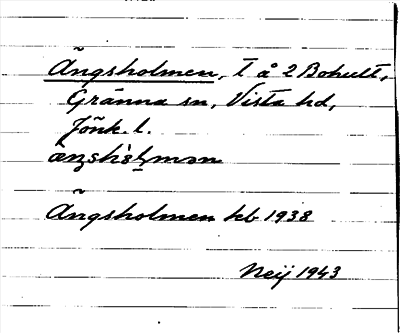 Ängsholmen, T å 2 Bohult,
Gränna sn, Vista hd,
Jönk. l.
Ängsholmen kb 1938
Neij 1943